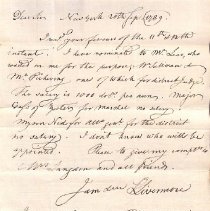 Dear Sir New York 20th Sept. 1789.
I recd. your favours of the 11th & 14th
instant. I have nominated to Mr. Lee, who
waited on me for the purpose, Mr.
Mr. Pickering, one of which for district Judge.
The salary is 1000 dolrs. per ann. Major
for marshal no salary.
for atty. genl. for the district
no salary. I don't know who will be
appointed. Please to give my complts. to
Mrs. Langdon and all friends.
I am dear Livermore